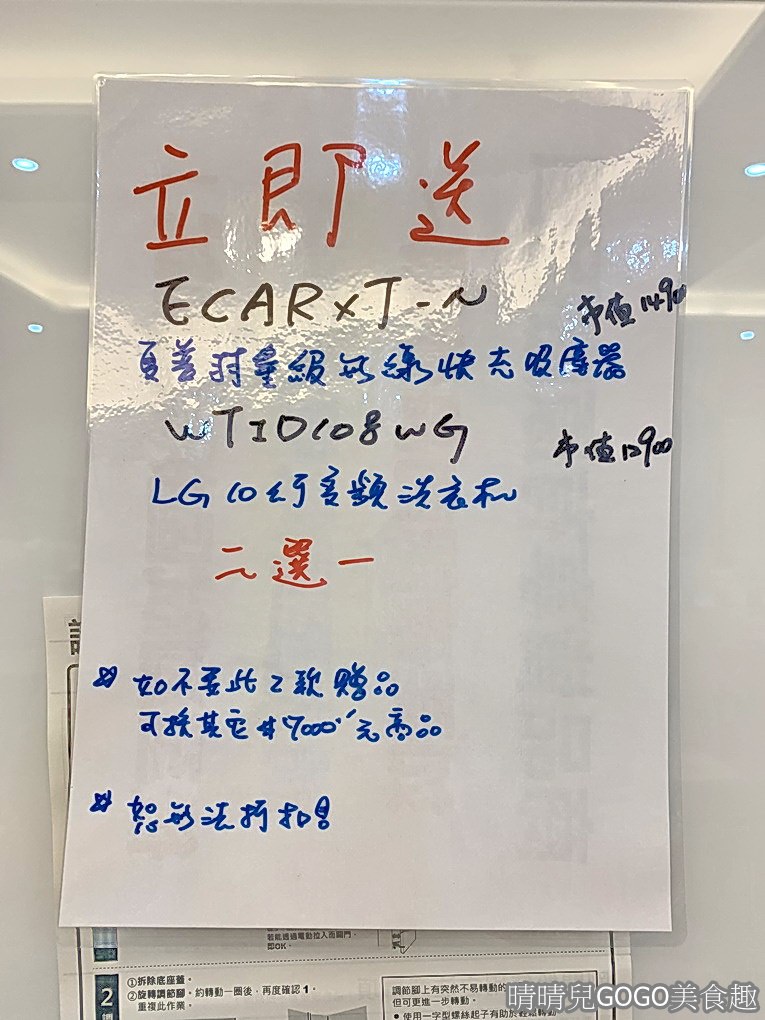 立即送
ECARXT-N 市值14900
夏普羽量級無線快充吸塵器
WTID108WG 市值12900
LG 10公斤變頻洗衣机
二選一
※ 如不要此2款贈品
可換其它$7000元商品
※ 恕無法折扣
較能透過電動拉入而關門,
即OK。
2
①拆除底座蓋。
②旋轉調節腳。約轉動一圈後,再度確認1。
重複此作業。
調節腳上有突然不易轉動的
但可更進一步轉動。
● 使用一字型螺絲起子有助於輕鬆轉動
晴晴兒GOGO美食趣